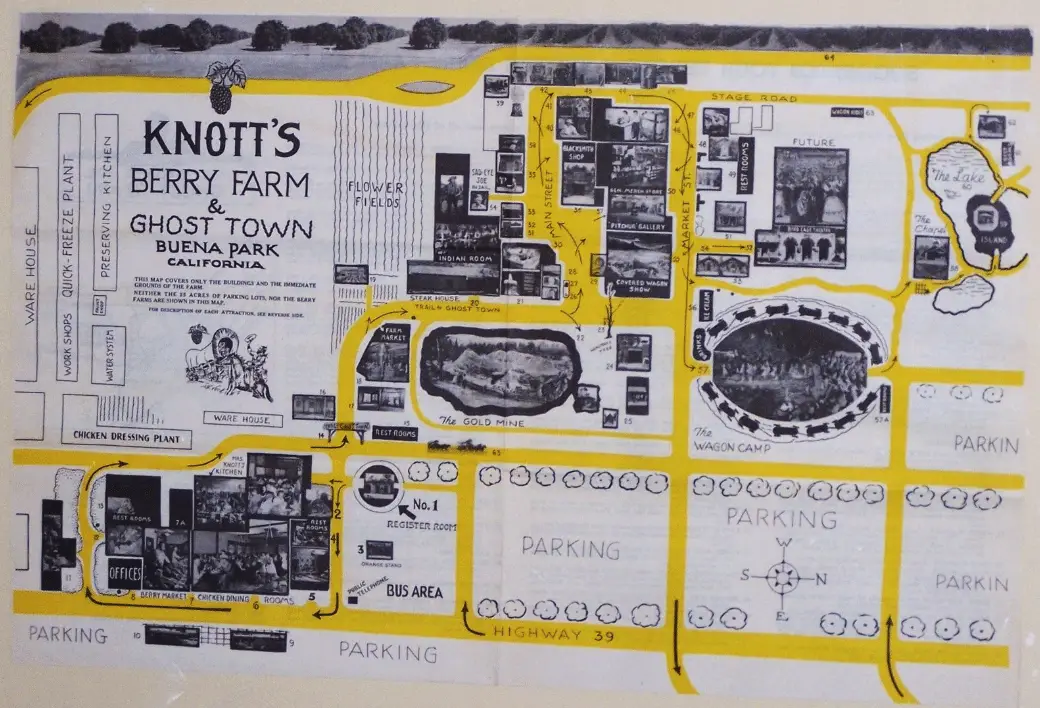 KNOTT'S
BERRY FARM
&
GHOST TOWN
BUENA PARK
CALIFORNIA
THIS MAP COVERS ONLY THE BUILDINGS AND THE IMMEDIATE
GROUNDS OF THE FARM.
NEITHER THE 15 ACRES OF PARKING LOTS, NOR THE BERRY
FARMS ARE SHOWN IN THIS MAP.
FOR DESCRIPTION OF EACH ATTRACTION, SEE REVERSE SIDE.
WARE HOUSE
WORK SHOPS QUICK-FREEZE PLANT
PRESERVING KITCHEN
WATER SYSTEM
CHICKEN DRESSING PLANT
WARE HOUSE
FLOWER
FIELDS
SAD-EYE
JOE
INDIAN ROOM
STEAK HOUSE
TRAIL TO GHOST TOWN
FARM
MARKET
The GOLD MINE
REST ROOMS
MAIN STREET
BLACKSMITH
SHOP
GEN. MERCH STORE
PITCHUR GALLERY
COVERED WAGON
SHOW
MARKET ST.
STAGE ROAD
64
63
FUTURE
REST ROOMS
BIRD CAGE THEATER
ICE CREAM
The
WAGON CAMP
57
57A
The Lake
60
ISLAND
The
Chapel
62
MRS.
KNOTT'S
KITCHEN
REST ROOMS
7A
OFFICES
REST
ROOMS
8 BERRY MARKET 7 CHICKEN DINING ROOMS 5
6
No. 1
REGISTER ROOM
3
ORANGE STAND
PUBLIC
TELEPHONE
BUS AREA
65
PARKING
PARKING
PARKIN
PARKIN
W
S N
E
HIGHWAY 39
PARKING
10
9
PARKING